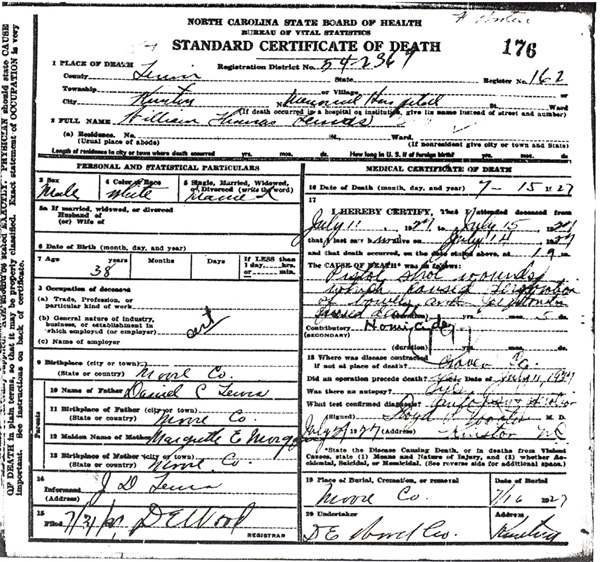 NORTH CAROLINA STATE BOARD OF HEALTH
BUREAU OF VITAL STATISTICS
STANDARD CERTIFICATE OF DEATH
176
1 PLACE OF DEATH
Registration District No. 54-2367
County Lenoir
State
Register No. 162
Township
or Village
City Kinston
No. Memorial Hospital
St. Ward
(If death occurred in a hospital or institution, give its name instead of street and number)
2 FULL NAME William Thomas Lewis
(a) Residence. No. St. Ward.
(Usual place of abode)
(If nonresident give city or town and State)
Length of residence in city or town where death occurred yrs. mos. ds. How long in U. S. if of foreign birth? yrs. mos. ds.
PERSONAL AND STATISTICAL PARTICULARS
3 Sex Male
4 Color or Race White
5 Single, Married, Widowed, or Divorced (write the word)
5a If married, widowed, or divorced
Husband of
(or) Wife of
6 Date of Birth (month, day, and year)
7 Age years 38 Months Days If LESS than 1 day, hrs. or min.
8 Occupation of deceased
(a) Trade, Profession, or particular kind of work
(b) General nature of industry, business, or establishment in which employed (or employer)
(c) Name of employer
9 Birthplace (city or town)
(State or country) Moore Co.
Parents
10 Name of Father Daniel C Lewis
11 Birthplace of Father (city or town)
(State or country) Moore Co.
12 Maiden Name of Mother Margrette E
13 Birthplace of Mother (city or town)
(State or country) Moore Co.
14 Informant J D Lewis
(Address)
15 Filed 7/31 D E Wood
REGISTRAR
MEDICAL CERTIFICATE OF DEATH
16 Date of Death (month, day, and year) 7-15 1927
17 I HEREBY CERTIFY, That I attended deceased from
July 11, 1927 to July 15 1927
that I last saw alive on July 14 1927
and that death occurred, on the date stated above, at
The CAUSE OF DEATH* was as follows:
Pistol shot wounds
which caused
of bowels and
(duration) yrs. mos. 5 ds.
Contributory Homicide
(SECONDARY)
(duration) yrs. mos. ds.
18 Where was disease contracted
if not at place of death? Craven Co.
Did an operation precede death? Yes Date of July 11, 1927
Was there an autopsy?
What test confirmed diagnosis?
(Signed) M. D.
1927 (Address) Kinston N C
*State the Disease Causing Death, or in deaths from Violent Causes, state (1) Means and Nature of Injury, and (2) whether Accidental, Suicidal, or Homicidal. (See reverse side for additional space.)
19 Place of Burial, Cremation, or removal
Moore Co.
7/16 1927
20 Undertaker
Address
D E Wood Co. Kinston
PHYSICIAN should state CAUSE
OF DEATH in plain terms, so that it may be properly classified. Exact statement of OCCUPATION is very
important. See instructions on back of certificate.